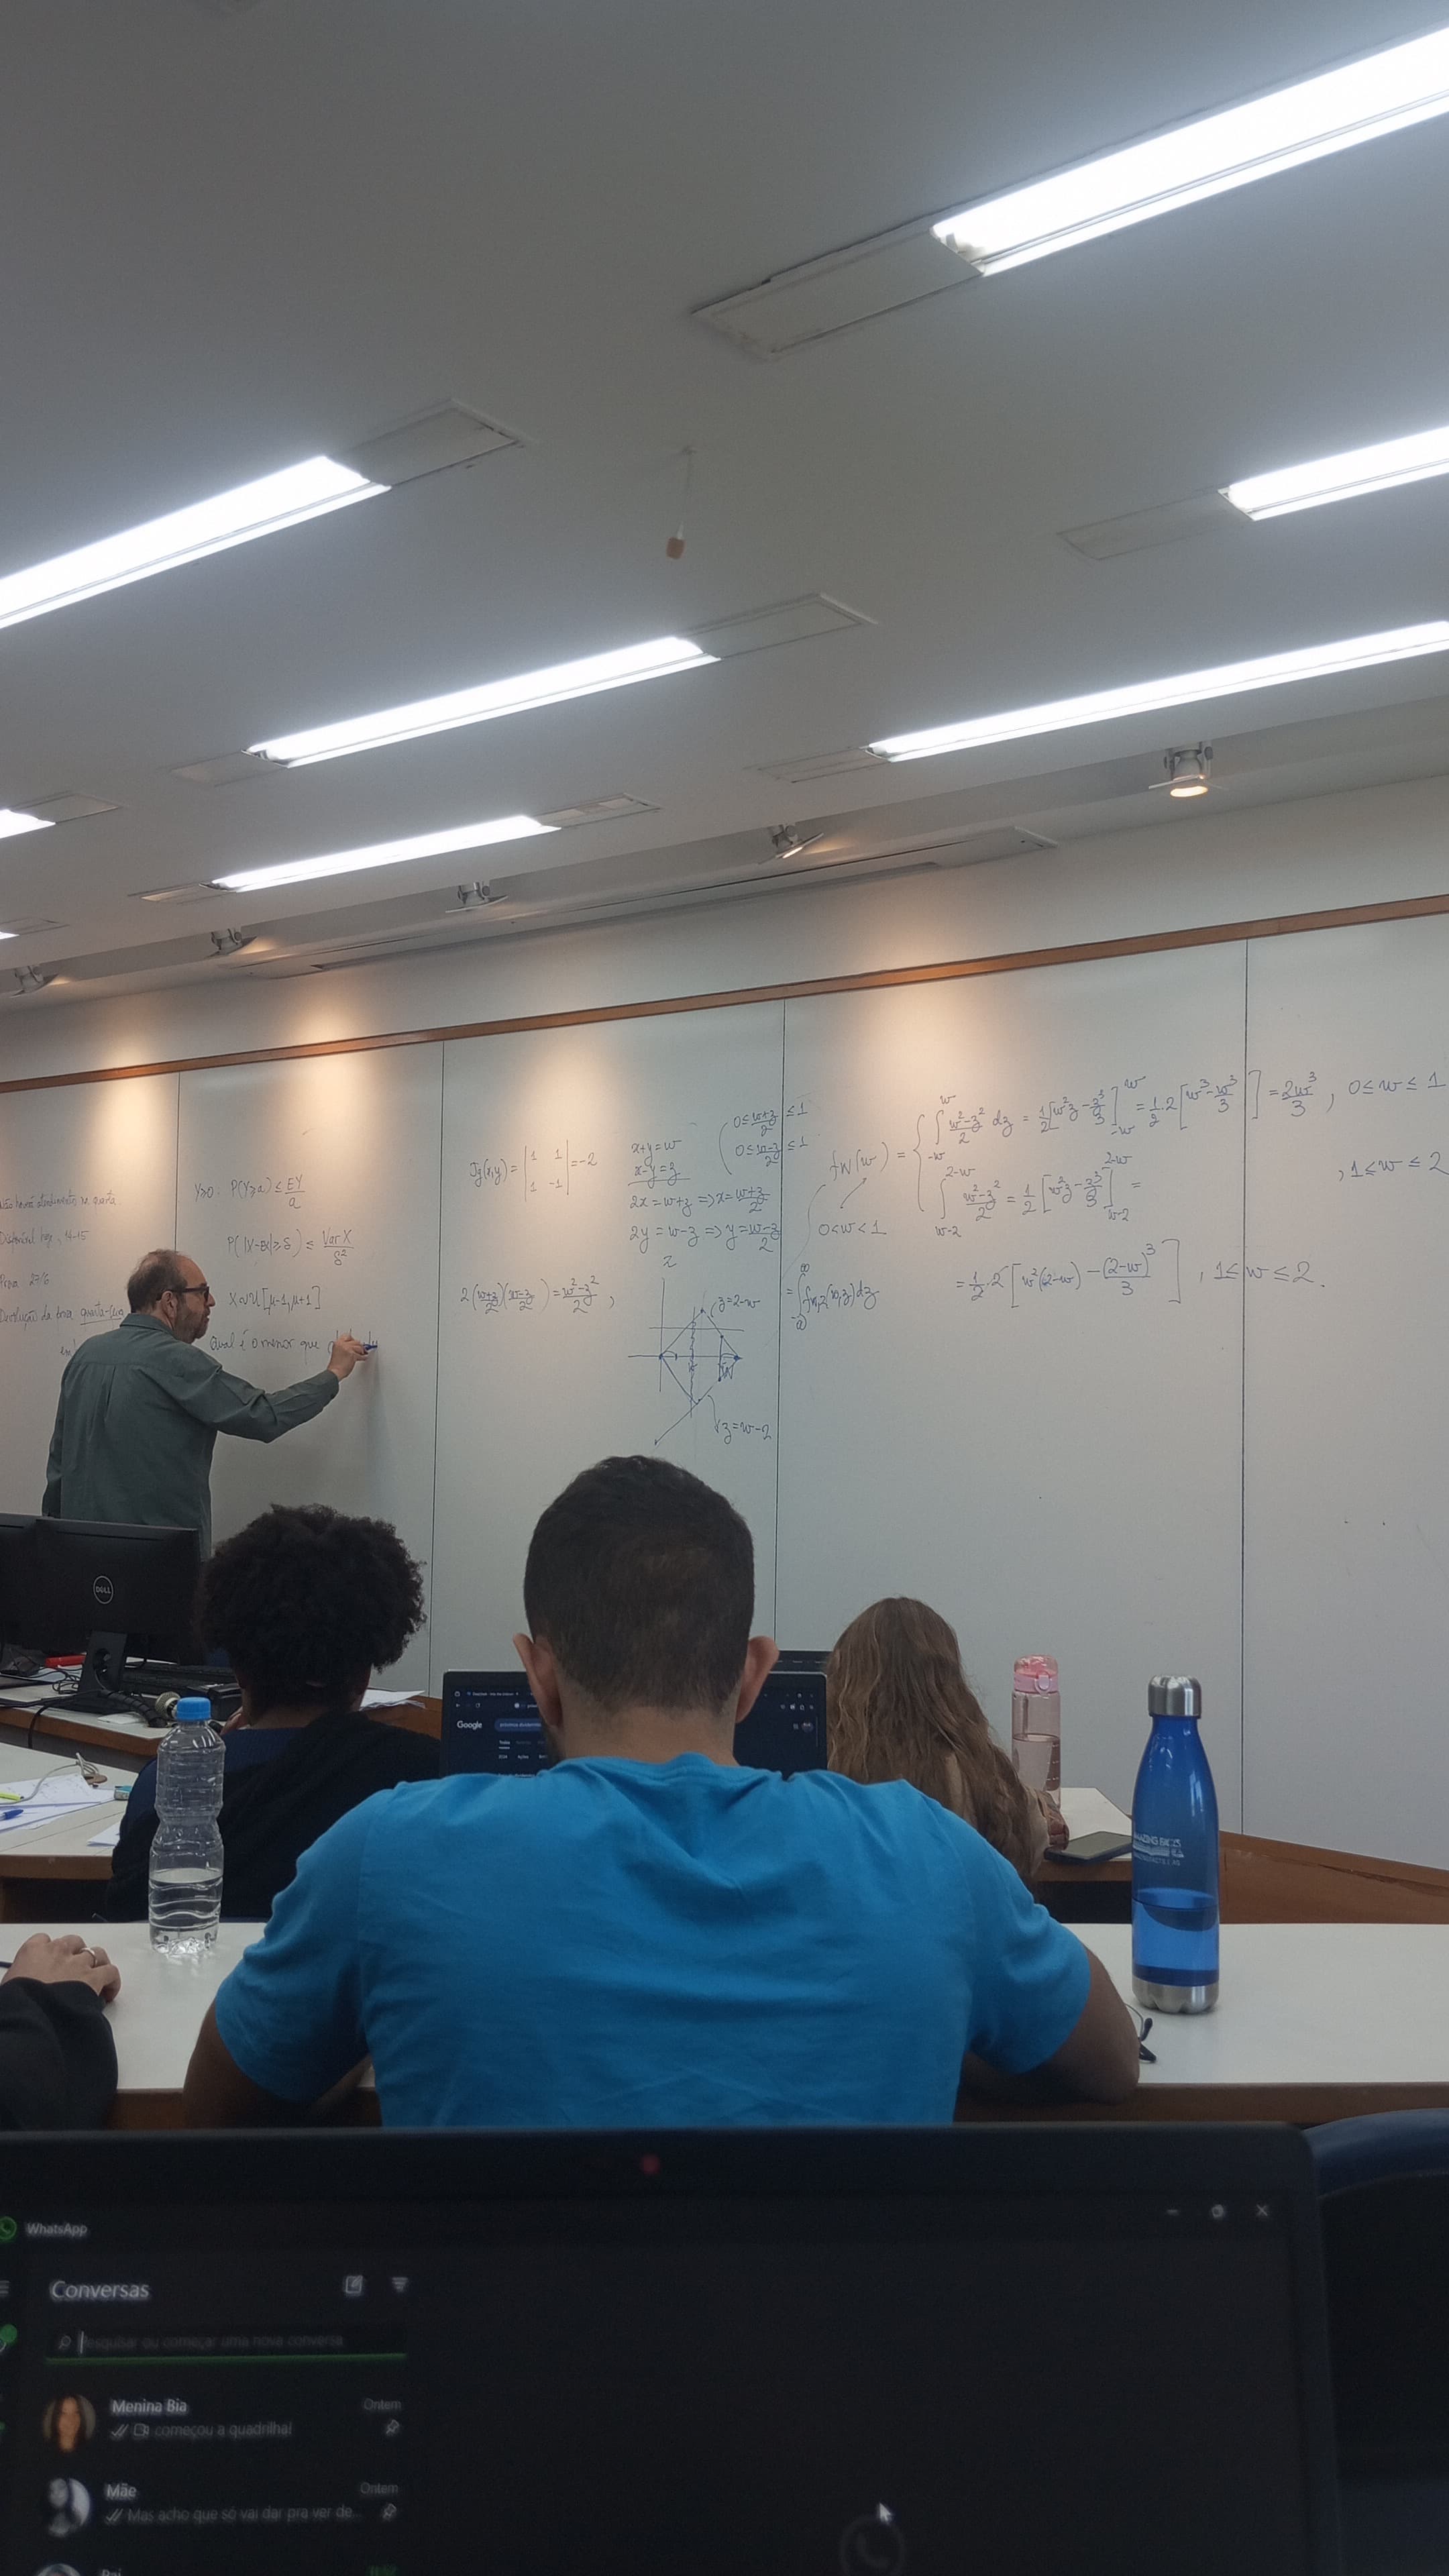 Não haverá atendimento na quarta
Disponível hoje, 14-15
Prova 27/6
Devolução da prova quarta-feira
Y≥0: P(Y≥a) ≤ EY/a
P(|X-EX|≥δ) ≤ Var X/δ²
X∼U[μ-1, μ+1]
Qual é o menor que
Jg(x,y) = |1 1; 1 -1| = -2
x+y=w
x-y=z
2x = w+z => x = (w+z)/2
2y = w-z => y = (w-z)/2
0 ≤ (w+z)/2 ≤ 1
0 ≤ (w-z)/2 ≤ 1
2((w+z)/2)((w-z)/2) = (w²-z²)/2,
z
z=2-w
w
z=w-2
fW(w) = { ∫_{-w}^{w} (w²-z²)/2 dz = 1/2[w²z - z³/3]_{-w}^{w} = 1/2·2[w³ - w³/3] = 2w³/3, 0≤w≤1
∫_{w-2}^{2-w} (w²-z²)/2 = 1/2[w²z - z³/3]_{w-2}^{2-w} = , 1≤w≤2
0<w<1
= 1/2·2[w²(2-w) - (2-w)³/3], 1≤w≤2.
= ∫_{-∞}^{∞} fw,z(w,z)dz
DELL
Google
WhatsApp
Conversas
Pesquisar ou começar uma nova conversa
Menina Bia
Ontem
começou a quadrilha!
Mãe
Ontem
Mas acho que só vai dar pra ver de...
Pai